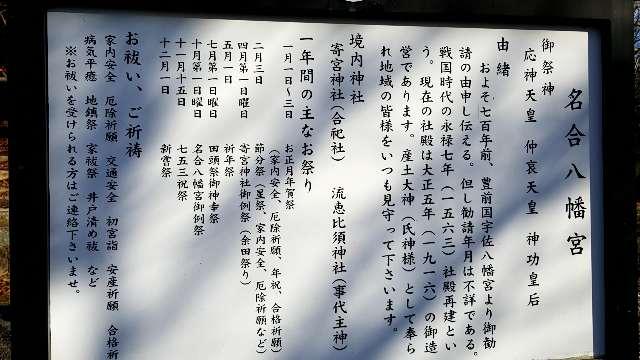 名合八幡宮
御祭神
応神天皇 仲哀天皇 神功皇后
由緒
およそ七百年前、豊前国宇佐八幡宮より御勧
請の由申し伝える。但し勧請年月は不詳である。
戦国時代の永禄七年(一五六三)社殿再建とい
う。現在の社殿は大正五年(一九一六)の御造
営であります。産土大神(氏神様)として奉ら
れ地域の皆様をいつも見守って下さいます。
境内神社
寄宮神社(合祀社) 流恵比須神社(事代主神)
一年間の主なお祭り
一月一日~三日 お正月年賀祭
(家内安全、厄除祈願、年祝、合格祈願)
二月三日 節分祭(星祭、家内安全、厄除祈願など)
四月第一日曜日 寄宮神社御例祭(余田祭り)
五月一日 祈年祭
七月第一日曜日 田頭祭御神幸祭
十月第一日曜日 名合八幡宮御例祭
十一月十五日 七五三祝祭
十二月一日 新嘗祭
お祓い、ご祈祷
家内安全 厄除祈願 交通安全 初宮詣 安産祈願 合格祈
病気平癒 地鎮祭 家祓祭 井戸清め祓 など
※お祓いを受けられる方はご連絡下さいませ。